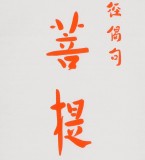 經偈句
菩提